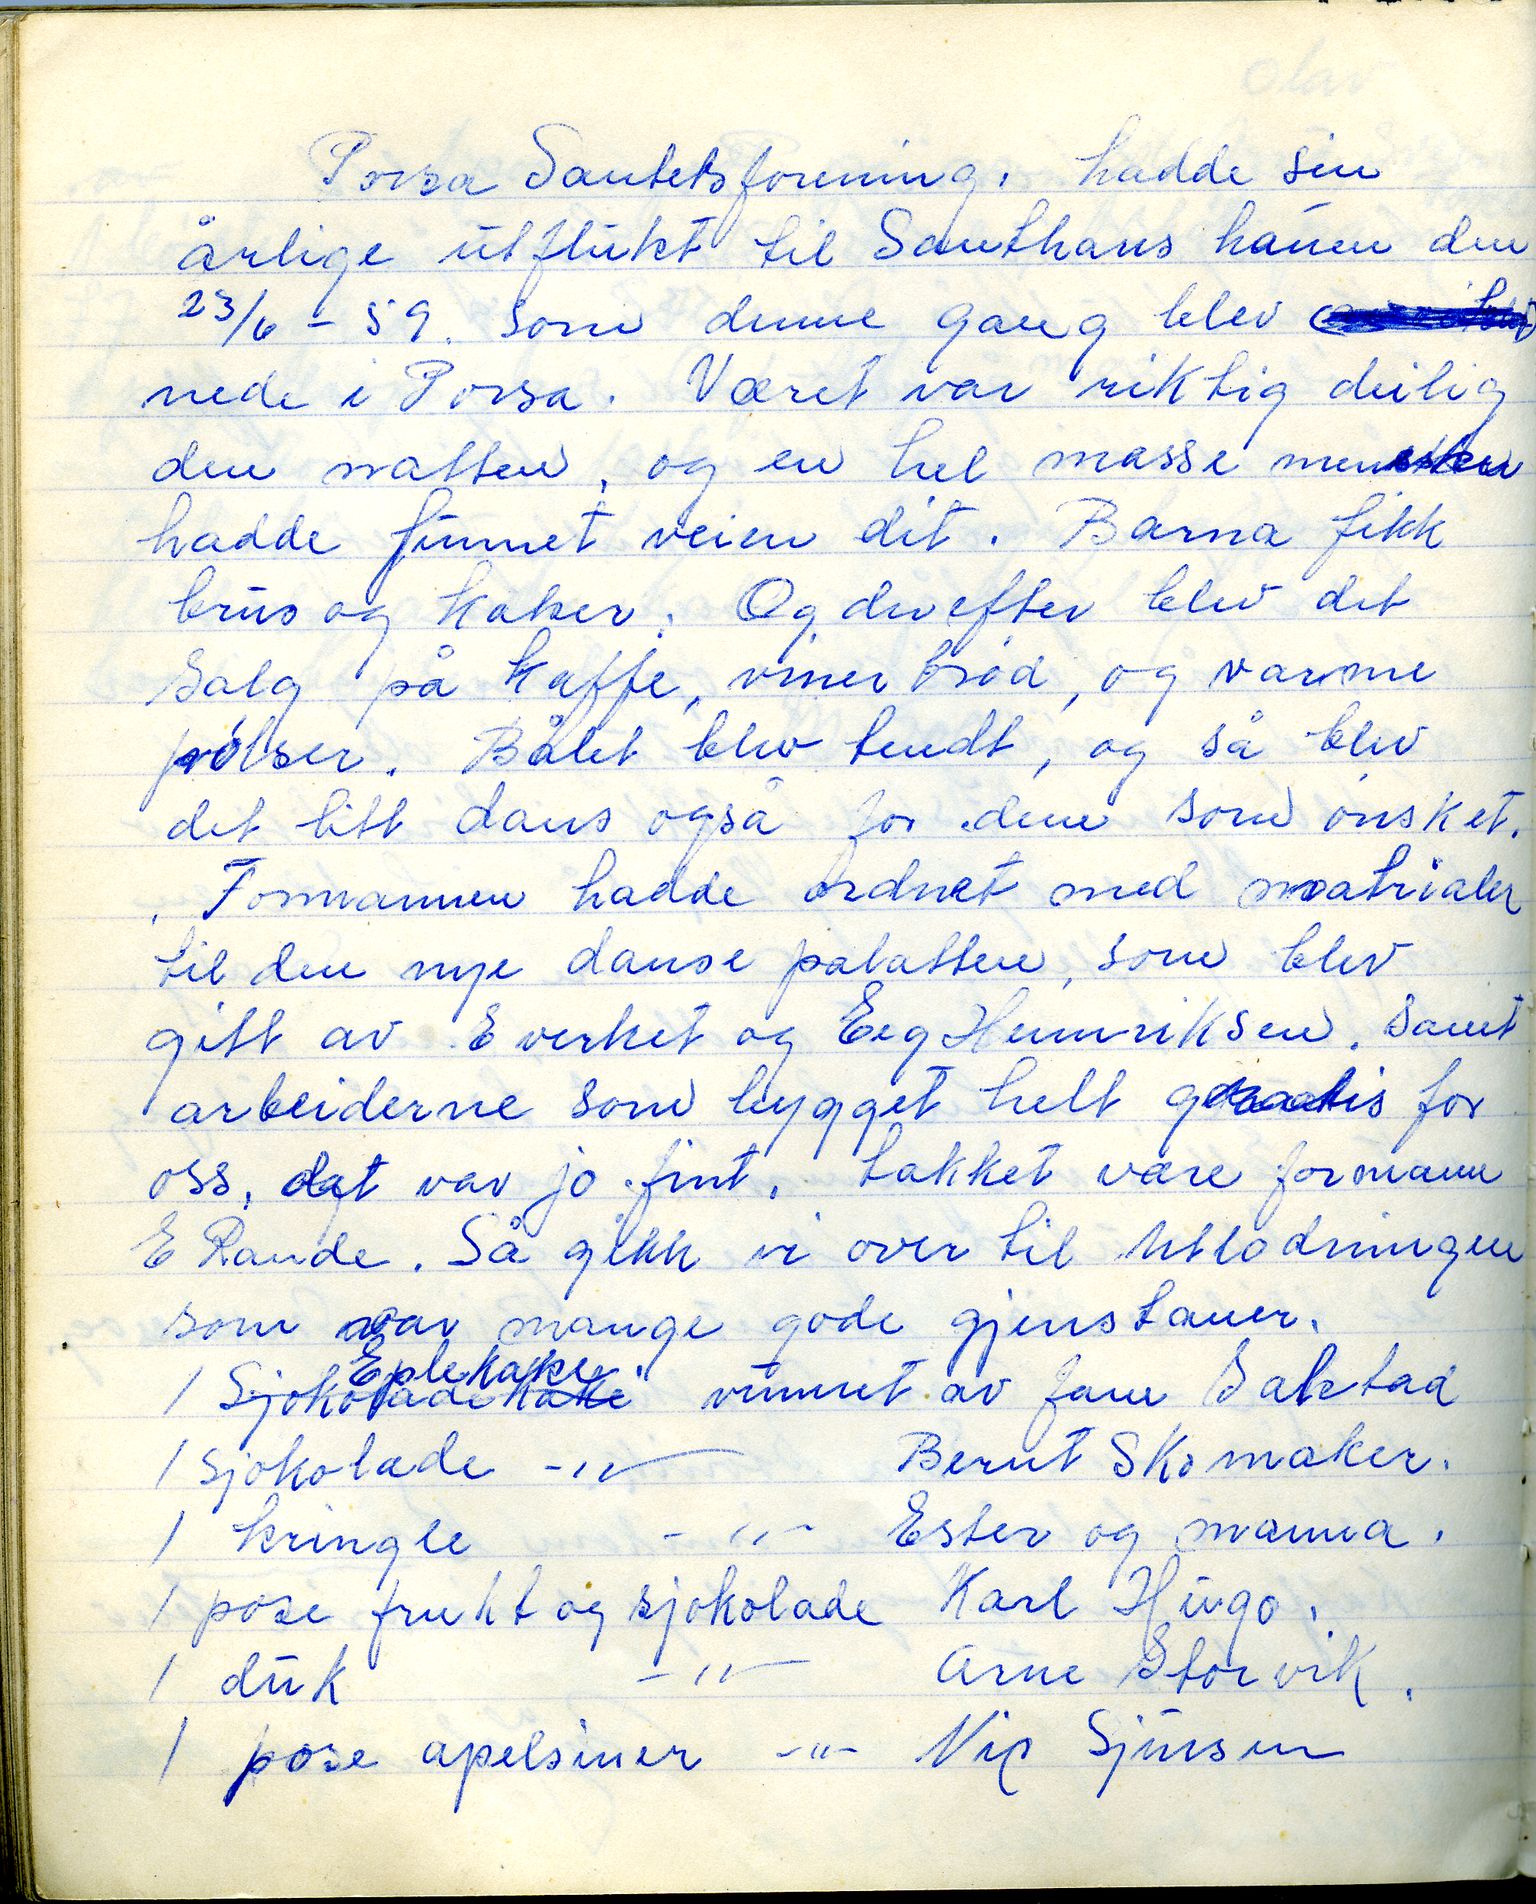 Porsa Sanitetsforening. hadde sin
årlige utflukt til Santhans haùen den
23/6 - 59. som denne gang blev
nede i Porsa. Været var riktig deilig
den natten, og en hel masse mennesker
hadde funnet veien dit. Barna fikk
brus og kaker. Og derefter blev det
Salg på kaffe, viner brød, og varme
pølser. Bålet blev tendt, og så blev
det litt dans også for dem som ønsket.
Formannen hadde ordnet med matrialer
til den nye danse palatten, som blev
gitt av E verket og Henriksen. samt
arbeiderne som bygget helt gratis for
oss, det var jo fint. takket være formann
E Rande. Så gikk vi over til Utlodningen
som var mange gode gjenstaner.
Eplekake.
1 Sjokoladekake vunnet av fam Sakstad
1 sjokolade -"- Bernt Skomaker.
1 kringle -"- Ester og mamma.
1 pose frukt og sjokolade Karl Hugo.
1 duk -"- Arne Storvik.
1 pose apelsiner -"-